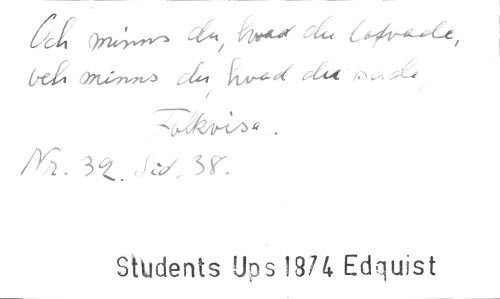 Och minns du, hvad du lofvade,
och minns du, hvad du sade,
Folkvisa.
Nr. 32. Sid. 38.
Students Ups 1874 Edquist